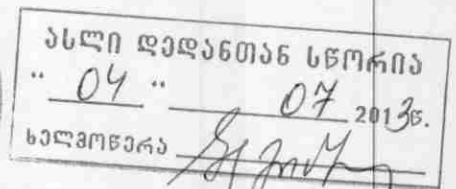 ასლი დედანთან სწორია
" 04 " 07 2013წ.
ხელმოწერა